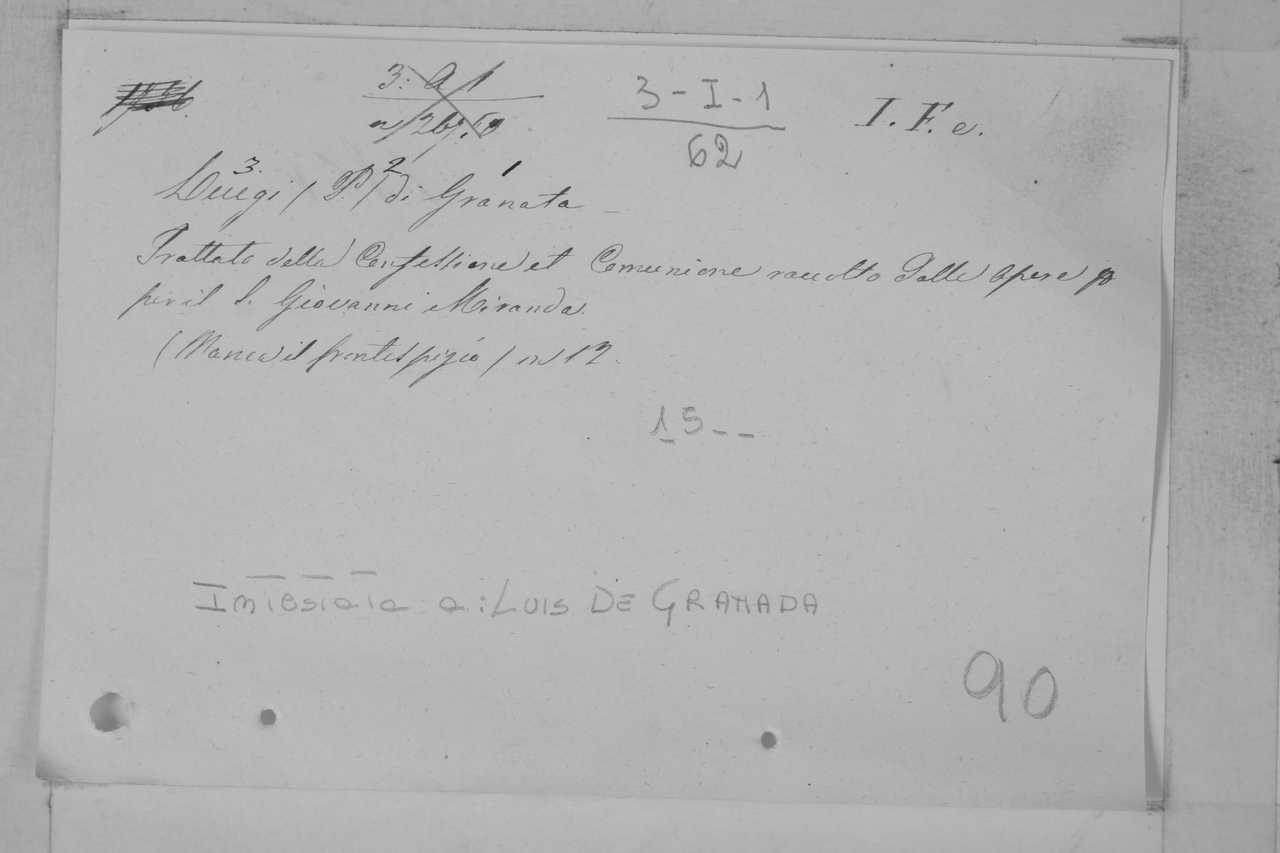 3: A 1
3-I-1
62
I. F. e.
3 2 1
Luigi (P.) di Granata
Trattato della Confessione et Comunione raccolto dalle Opere
per il S. Giovanni Miranda.
(Manca il frontespizio) in 12.
15--
Intestata a: LUIS DE GRANADA
90